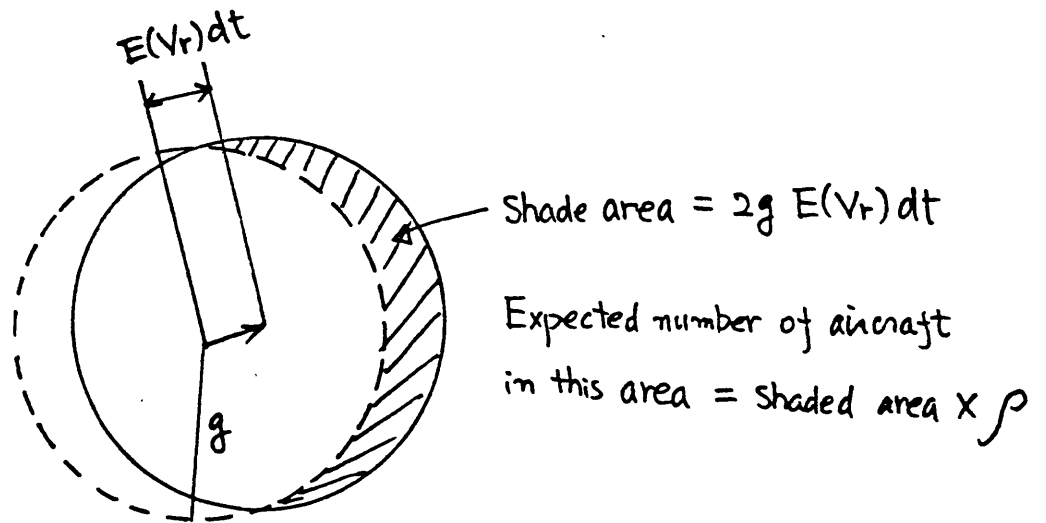 E(Vr)dt
Shade area = 2g E(Vr)dt
Expected number of aircraft
in this area = Shaded area × ρ
g